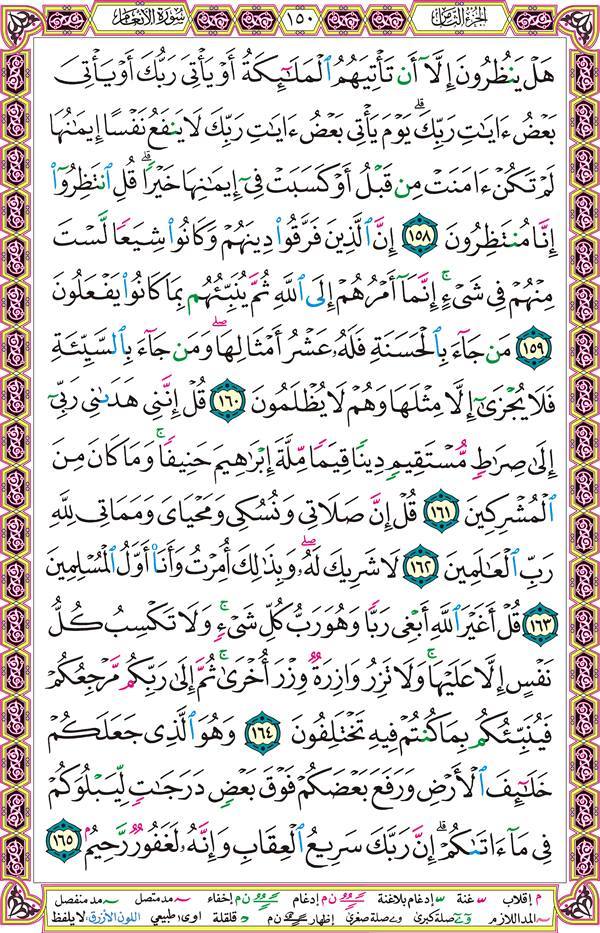 الجزء الثامن ١٥٠ سورة الأنعام
هَلْ يَنظُرُونَ إِلَّآ أَن تَأْتِيَهُمُ ٱلْمَلَـٰٓئِكَةُ أَوْ يَأْتِىَ رَبُّكَ أَوْ يَأْتِىَ
بَعْضُ ءَايَـٰتِ رَبِّكَ ۗ يَوْمَ يَأْتِى بَعْضُ ءَايَـٰتِ رَبِّكَ لَا يَنفَعُ نَفْسًا إِيمَـٰنُهَا
لَمْ تَكُنْ ءَامَنَتْ مِن قَبْلُ أَوْ كَسَبَتْ فِىٓ إِيمَـٰنِهَا خَيْرًا ۗ قُلِ ٱنتَظِرُوٓا۟
إِنَّا مُنتَظِرُونَ ١٥٨ إِنَّ ٱلَّذِينَ فَرَّقُوا۟ دِينَهُمْ وَكَانُوا۟ شِيَعًا لَّسْتَ
مِنْهُمْ فِى شَىْءٍ ۚ إِنَّمَآ أَمْرُهُمْ إِلَى ٱللَّهِ ثُمَّ يُنَبِّئُهُم بِمَا كَانُوا۟ يَفْعَلُونَ
١٥٩ مَن جَآءَ بِٱلْحَسَنَةِ فَلَهُۥ عَشْرُ أَمْثَالِهَا ۖ وَمَن جَآءَ بِٱلسَّيِّئَةِ
فَلَا يُجْزَىٰٓ إِلَّا مِثْلَهَا وَهُمْ لَا يُظْلَمُونَ ١٦٠ قُلْ إِنَّنِى هَدَىٰنِى رَبِّىٓ
إِلَىٰ صِرَٰطٍ مُّسْتَقِيمٍ دِينًا قِيَمًا مِّلَّةَ إِبْرَٰهِيمَ حَنِيفًا ۚ وَمَا كَانَ مِنَ
ٱلْمُشْرِكِينَ ١٦١ قُلْ إِنَّ صَلَاتِى وَنُسُكِى وَمَحْيَاىَ وَمَمَاتِى لِلَّهِ
رَبِّ ٱلْعَـٰلَمِينَ ١٦٢ لَا شَرِيكَ لَهُۥ ۖ وَبِذَٰلِكَ أُمِرْتُ وَأَنَا۠ أَوَّلُ ٱلْمُسْلِمِينَ
١٦٣ قُلْ أَغَيْرَ ٱللَّهِ أَبْغِى رَبًّا وَهُوَ رَبُّ كُلِّ شَىْءٍ ۚ وَلَا تَكْسِبُ كُلُّ
نَفْسٍ إِلَّا عَلَيْهَا ۚ وَلَا تَزِرُ وَازِرَةٌ وِزْرَ أُخْرَىٰ ۚ ثُمَّ إِلَىٰ رَبِّكُم مَّرْجِعُكُمْ
فَيُنَبِّئُكُم بِمَا كُنتُمْ فِيهِ تَخْتَلِفُونَ ١٦٤ وَهُوَ ٱلَّذِى جَعَلَكُمْ
خَلَـٰٓئِفَ ٱلْأَرْضِ وَرَفَعَ بَعْضَكُمْ فَوْقَ بَعْضٍ دَرَجَـٰتٍ لِّيَبْلُوَكُمْ
فِى مَآ ءَاتَىٰكُمْ ۗ إِنَّ رَبَّكَ سَرِيعُ ٱلْعِقَابِ وَإِنَّهُۥ لَغَفُورٌ رَّحِيمٌۢ ١٦٥
م إقلاب غنة إدغام بلاغنة ن م إدغام ن م إخفاء مد متصل مد منفصل
المد اللازم صلة كبرى صلة صغرى إظهار ن م قلقلة اوى طبيعي اللون الأزرق: لا يلفظ